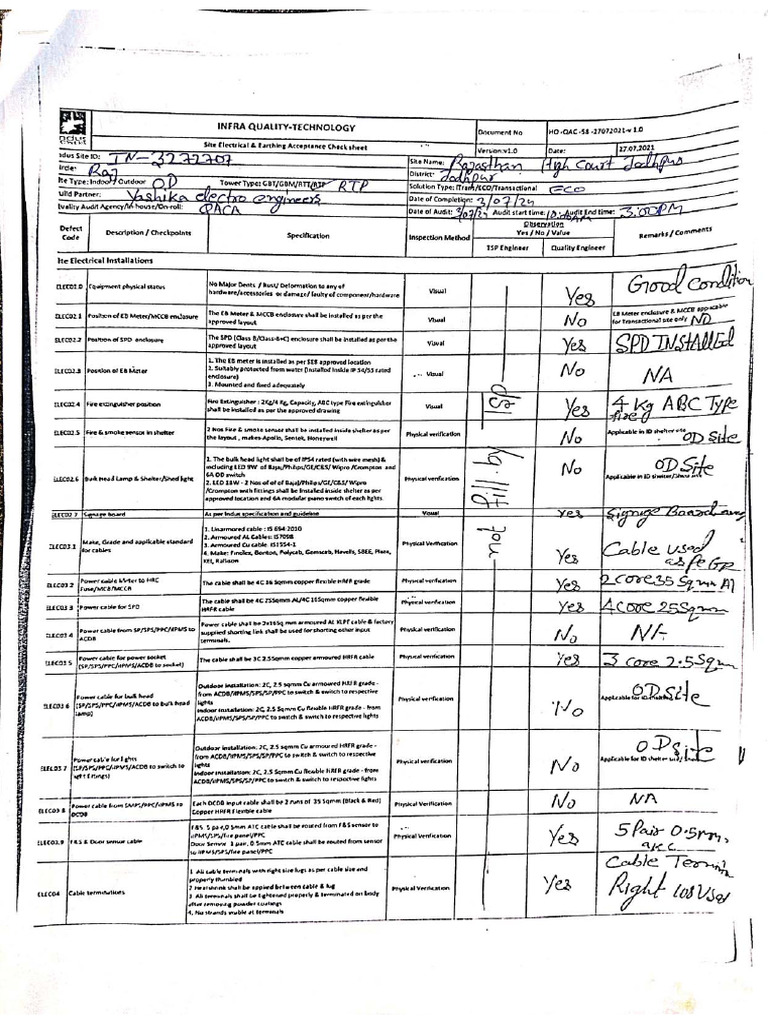 INFRA QUALITY-TECHNOLOGY
Document No
HO -QAC -58 -27072021-v 1.0
Site Electrical & Earthing Acceptance Check sheet
Version:v1.0
Date:
27.07.2021
ndus Site ID: IN-3272707
Site Name: Rajasthan High Court Jodhpur
ircle: Raj
District: Jodhpur
ite Type: Indoor/ Outdoor OD
Tower Type: GBT/GBM/RTT/RTP RTP
Solution Type: ITram/ECO/Transactional ECO
uild Partner: Yashika electro engineers
Date of Completion: 3/07/24
uality Audit Agency/In-house/On-roll: QACA
Date of Audit: 3/07/24 Audit start time: Audit End time: 3:00PM
Defect Code
Description / Checkpoints
Specification
Inspection Method
Observation
Yes / No / Value
TSP Engineer
Quality Engineer
Remarks / Comments
ite Electrical Installations
not fill by TSP
ELEC01.0
Equipment physical status
No Major Dents / Rust/ Deformation to any of
hardware/accessories or damage/ faulty of component/hardware
Visual
Yes
Good Condition
ELEC02.1
Position of EB Meter/MCCB enclosure
The EB Meter & MCCB enclosure shall be installed as per the
approved layout
Visual
No
EB Meter enclosure & MCCB applicable
for Transactional site only
ELEC02.2
Position of SPD enclosure
The SPD (Class B/Class-B+C) enclosure shall be installed as per the
approved layout
Visual
Yes
SPD INSTALLED
ELEC02.3
Position of EB Meter
1. The EB meter is installed as per SEB approved location
2. Suitably protected from water (Installed inside IP 54/55 rated
enclosure)
3. Mounted and fixed adequately
Visual
No
NA
ELEC02.4
Fire extinguisher position
Fire Extinguisher : 2Kg/4 Kg, Capacity, ABC type Fire extinguisher
shall be installed as per the approved drawing
Visual
Yes
4 Kg ABC Type
fire
ELEC02.5
Fire & smoke sensor in shelter
2 Nos Fire & smoke sensor shall be installed inside shelter as per
the layout , makes-Apollo, Sentek, Honeywell
Physical verification
No
Applicable in ID shelter site
OD Site
ELEC02.6
Bulk Head Lamp & Shelter/Shed light
1. The bulk head light shall be of IP54 rated (with wire mesh) &
including LED 9W of Bajaj/Philips/GE/C&S/ Wipro /Crompton and
6A OD switch
2. LED 18W - 2 Nos of of of Bajaj/Philips/GE/C&S/ Wipro
/Crompton with fittings shall be installed inside shelter as per
approved location and 6A modular piano switch of each lights.
Physical verification
No
OD Site
Applicable in ID shelter/
ELEC02.7
Signage board
As per Indus specification and guideline
Visual
Yes
Signage Board
ELEC03.1
Make, Grade and applicable standard
for cables
1. Unarmored cable : IS 694 2010
2. Armoured AL Cables: IS7098
3. Armoured Cu cable: IS1554-1
4. Make: Finolex, Bonton, Polycab, Gemscab, Havells, SBEE, Plaza,
KEI, Rallison
Physical Verification
Yes
Cable used
as per
ELEC03.2
Power cable Meter to HRC
Fuse/MCB/MCCB
The cable shall be 4C 16 Sqmm copper flexible HRFR grade
Physical verification
Yes
2 core 35 Sqmm Al
ELEC03.3
Power cable for SPD
The cable shall be 4C 25Sqmm AL/4C 16Sqmm copper flexible
HRFR cable
Physical verification
Yes
4 core 25 Sqmm
ELEC03.4
Power cable from SP/SPS/PPC/iPMS to
ACDB
Power cable shall be 2x16Sq mm armoured AL XLPE cable & factory
supplied shorting link shall be used for shorting other input
terminals.
Physical verification
No
NA
ELEC03.5
Power cable for power socket
(SP/SPS/PPC/iPMS/ACDB to socket)
The cable shall be 3C 2.5Sqmm copper armoured HRFR cable
Physical verification
Yes
3 core 2.5 Sqmm
ELEC03.6
Power cable for bulk head
(SP/SPS/PPC/iPMS/ACDB to bulk head
lamp)
Outdoor Installation: 2C, 2.5 sqmm Cu armoured HRFR grade -
from ACDB/iPMS/SPS/SP/PPC to switch & switch to respective
lights
Indoor Installation: 2C, 2.5 Sqmm Cu flexible HRFR grade - from
ACDB/iPMS/SPS/SP/PPC to switch & switch to respective lights
Physical verification
No
OD Site
ELEC03.7
Power cable for lights
(SP/SPS/PPC/iPMS/ACDB to switch to
light fittings)
Outdoor Installation: 2C, 2.5 sqmm Cu armoured HRFR grade -
from ACDB/iPMS/SPS/SP/PPC to switch & switch to respective
lights
Indoor Installation: 2C, 2.5 Sqmm Cu flexible HRFR grade -from
ACDB/iPMS/SPS/SP/PPC to switch & switch to respective lights
Physical verification
No
OD Site
Applicable for ID shelter
ELEC03.8
Power cable from SMPS/PPC/iPMS to
DCDB
Each DCDB input cable shall be 2 runs of 35 Sqmm (Black & Red)
Copper HRFR Flexible cable
Physical verification
No
NA
ELEC03.9
F&S & Door sensor cable
F&S. 5 pair,0.5mm ATC cable shall be routed from F&S sensor to
iPMS/SPS/fire panel/PPC
Door Sensor 1 pair, 0.5mm ATC cable shall be routed from sensor
to iPMS/SPS/SPS/fire panel/PPC
Physical Verification
Yes
5 Pair 0.5mm
ELEC04
Cable terminations
1 All cable terminals with right size lugs as per cable size and
properly thumbled
2 Heatshrink shall be applied between cable & lug
3 All terminals shall be tightened properly & terminated on body
after removing powder coatings
4. No strands visible at terminals
Physical Verification
Yes
Cable
Right used